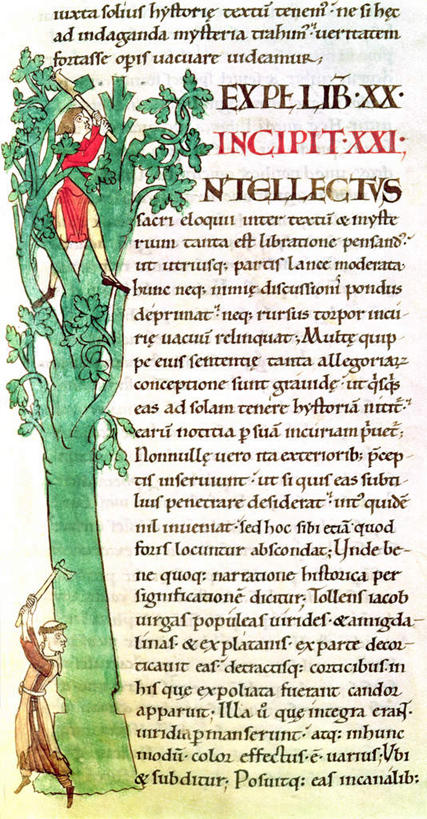 iuxta solius hystorię textū tenem᷒. ne si hęc
ad indaganda mysteria trahim᷒. ueritatem
fortasse opis uacuare uideamur;
EXPƗ LIB · XX ·
INCIPIT · XXI ·
NTELLECTVS
sacri eloquii inter textū & myste
rium tanta est libratione pensand᷒.
ut utriusq; partis lance moderata
hunc neq; nimię discussioni᷒ pondus
deprimat᷒. neq; rursus torpor incu
rię uacuū relinquat; Multę quip
pe eius sententię tanta allegoriaꝝ
conceptione sunt grauidę. ut q̇sq̇s
eas ad solam tenere hystoriā nitit᷒.
earū notitia ꝑ suā incuriam p̄uet᷒;
Nonnullę uero ita exteriorib; p̄cep
tis inseruiunt. ut si quis eas subti
lius penetrare desiderat᷒. int᷒ quidē
nil inueniat. sed hoc sibi etiā quod
foris locuntur abscondat; Unde be
ne quoq; narratione historica per
significationē dicitur; Tollens iacob
uirgas populeas uirides. & amigda-
linas. & ex platanis. ex parte decor-
ticauit eas. detractisq; corticibus. in
his quę expoliata fuerant candor
apparuit; Illa ū quę integra eraṅt.
uiridia ꝑmanserunt. atq; in hunc
modū color effectus. ē. uarius; Vbi
& subditur; Posuitq; eas in canalib: